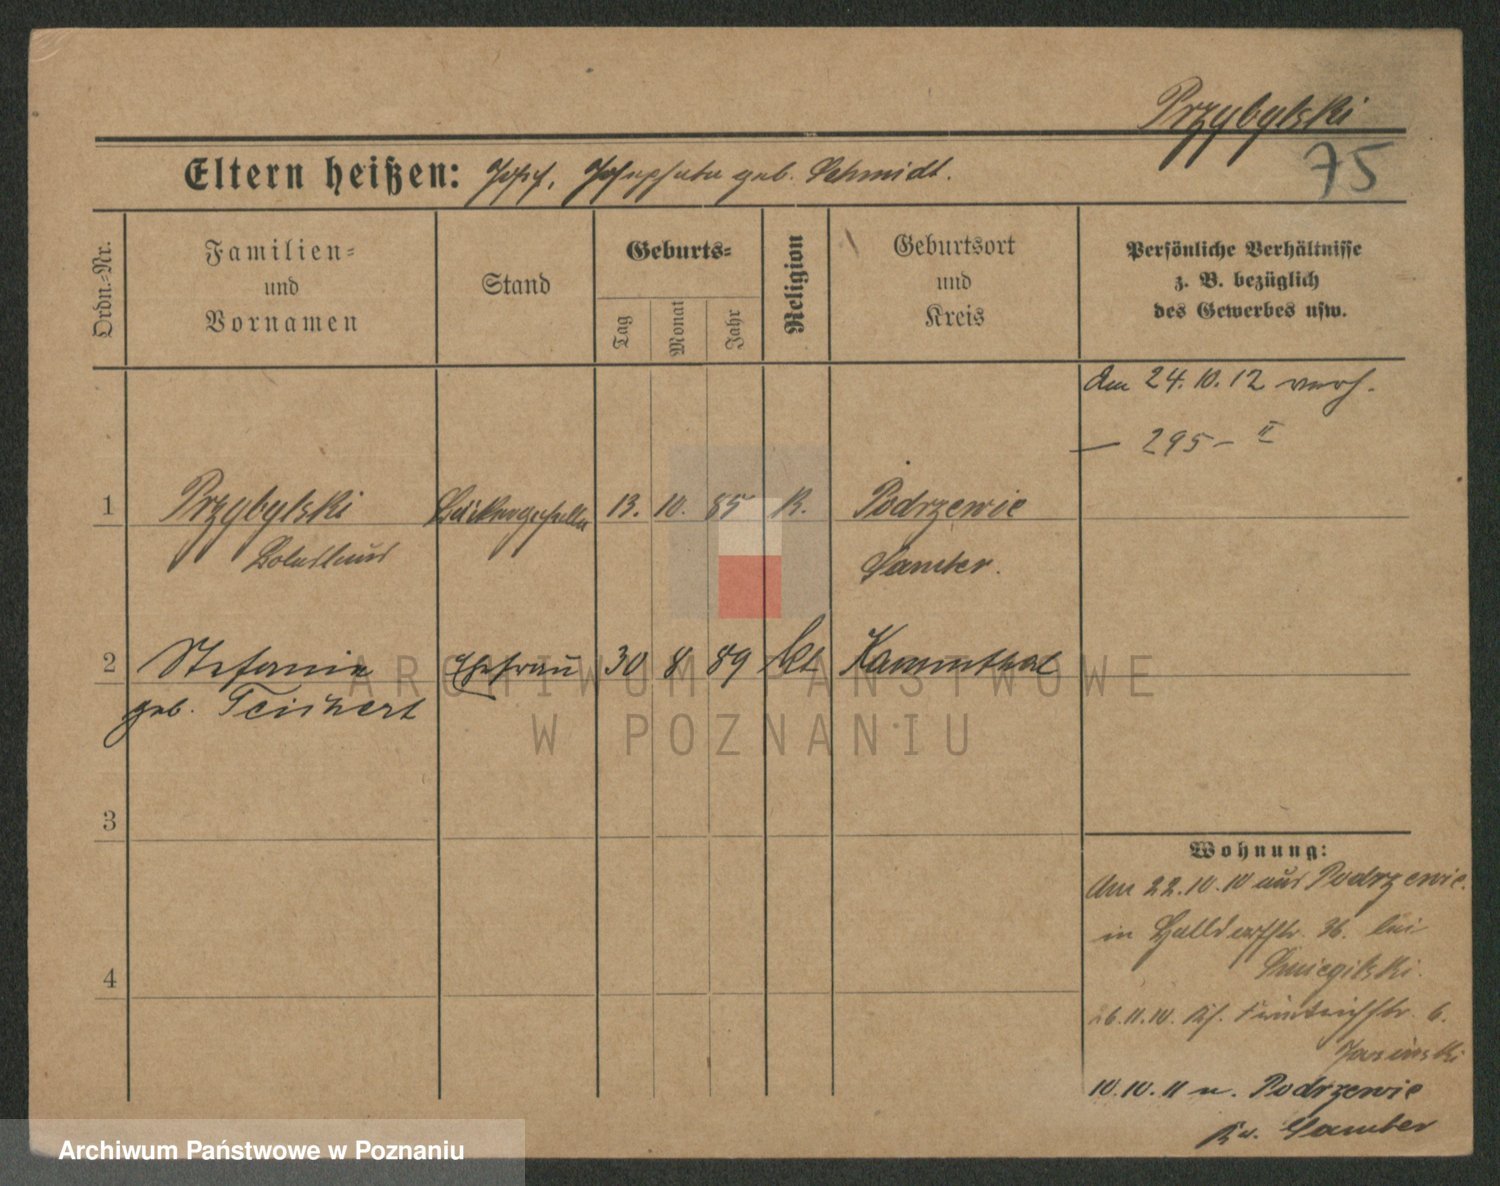 Przybylski
75
Eltern heißen: Josef, Josephata geb. Schmidt.
Ordn.-Nr.
Familien-
und
Vornamen
Stand
Geburts-
Tag
Monat
Jahr
Religion
Geburtsort
und
Kreis
Persönliche Verhältnisse
z. B. bezüglich
des Gewerbes usw.
Am 24.10.12 verh.
— 295 – II
1 Przybylski Bäckergeselle 13. 10. 85 K. Podrzewie
Samter.
2 Stefania Ehefrau 30 8 89 kt Kammthal
geb. Teichert
3
4
Wohnung:
Am 22.10.10 aus Podrzewie.
in Halldorfstr. 36. bei
Smiegilski.
26.11.10. Kf. Friedrichstr. 6.
Jasinski
10.10.11 n. Podrzewie
Kr. Samter
ARCHIWUM PAŃSTWOWE
W POZNANIU
Archiwum Państwowe w Poznaniu